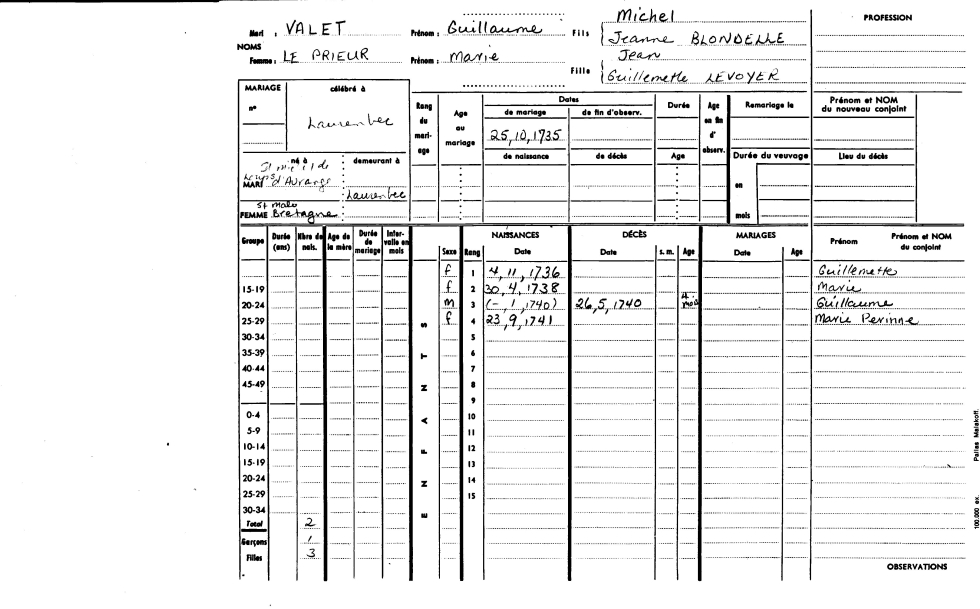 Mari : VALET Prénom : Guillaume Fils Michel
Jeanne BLONDELLE
NOMS
Femme : LE PRIEUR Prénom : Marie Fille Jean
Guillemette LEVOYER
PROFESSION
MARIAGE célébré à
n°
Laurenbec
né à : demeurant à
MARI d'Avrangs Laurenbec
St Malo
FEMME Bretagne
Rang du mari-age
Age au mariage
Dates
de mariage de fin d'observ.
25,10,1735
de naissance de décès
Durée
Age
Age en fin d' observ.
Remariage le
Durée du veuvage
en
mois
Prénom et NOM
du nouveau conjoint
Lieu du décès
Groupe Durée (ans) Nbre de nais. Age de la mère Durée de mariage Inter-valle en mois
ENFANTS
Sexe Rang NAISSANCES Date DÉCÈS Date s. m. Age MARIAGES Date Age Prénom Prénom et NOM du conjoint
f 1 4,11,1736 Guillemette
15-19 f 2 30,4,1738 Marie
20-24 m 3 (-,1,1740) 26,5,1740 4 mois Guillaume
25-29 f 4 23,9,1741 Marie Perinne
30-34 5
35-39 6
40-44 7
45-49 8
9
0-4 10
5-9 11
10-14 12
15-19 13
20-24 14
25-29 15
30-34
Total 2
Garçons 1
Filles 3
OBSERVATIONS
100.000 ex. Pallas Malakoff.